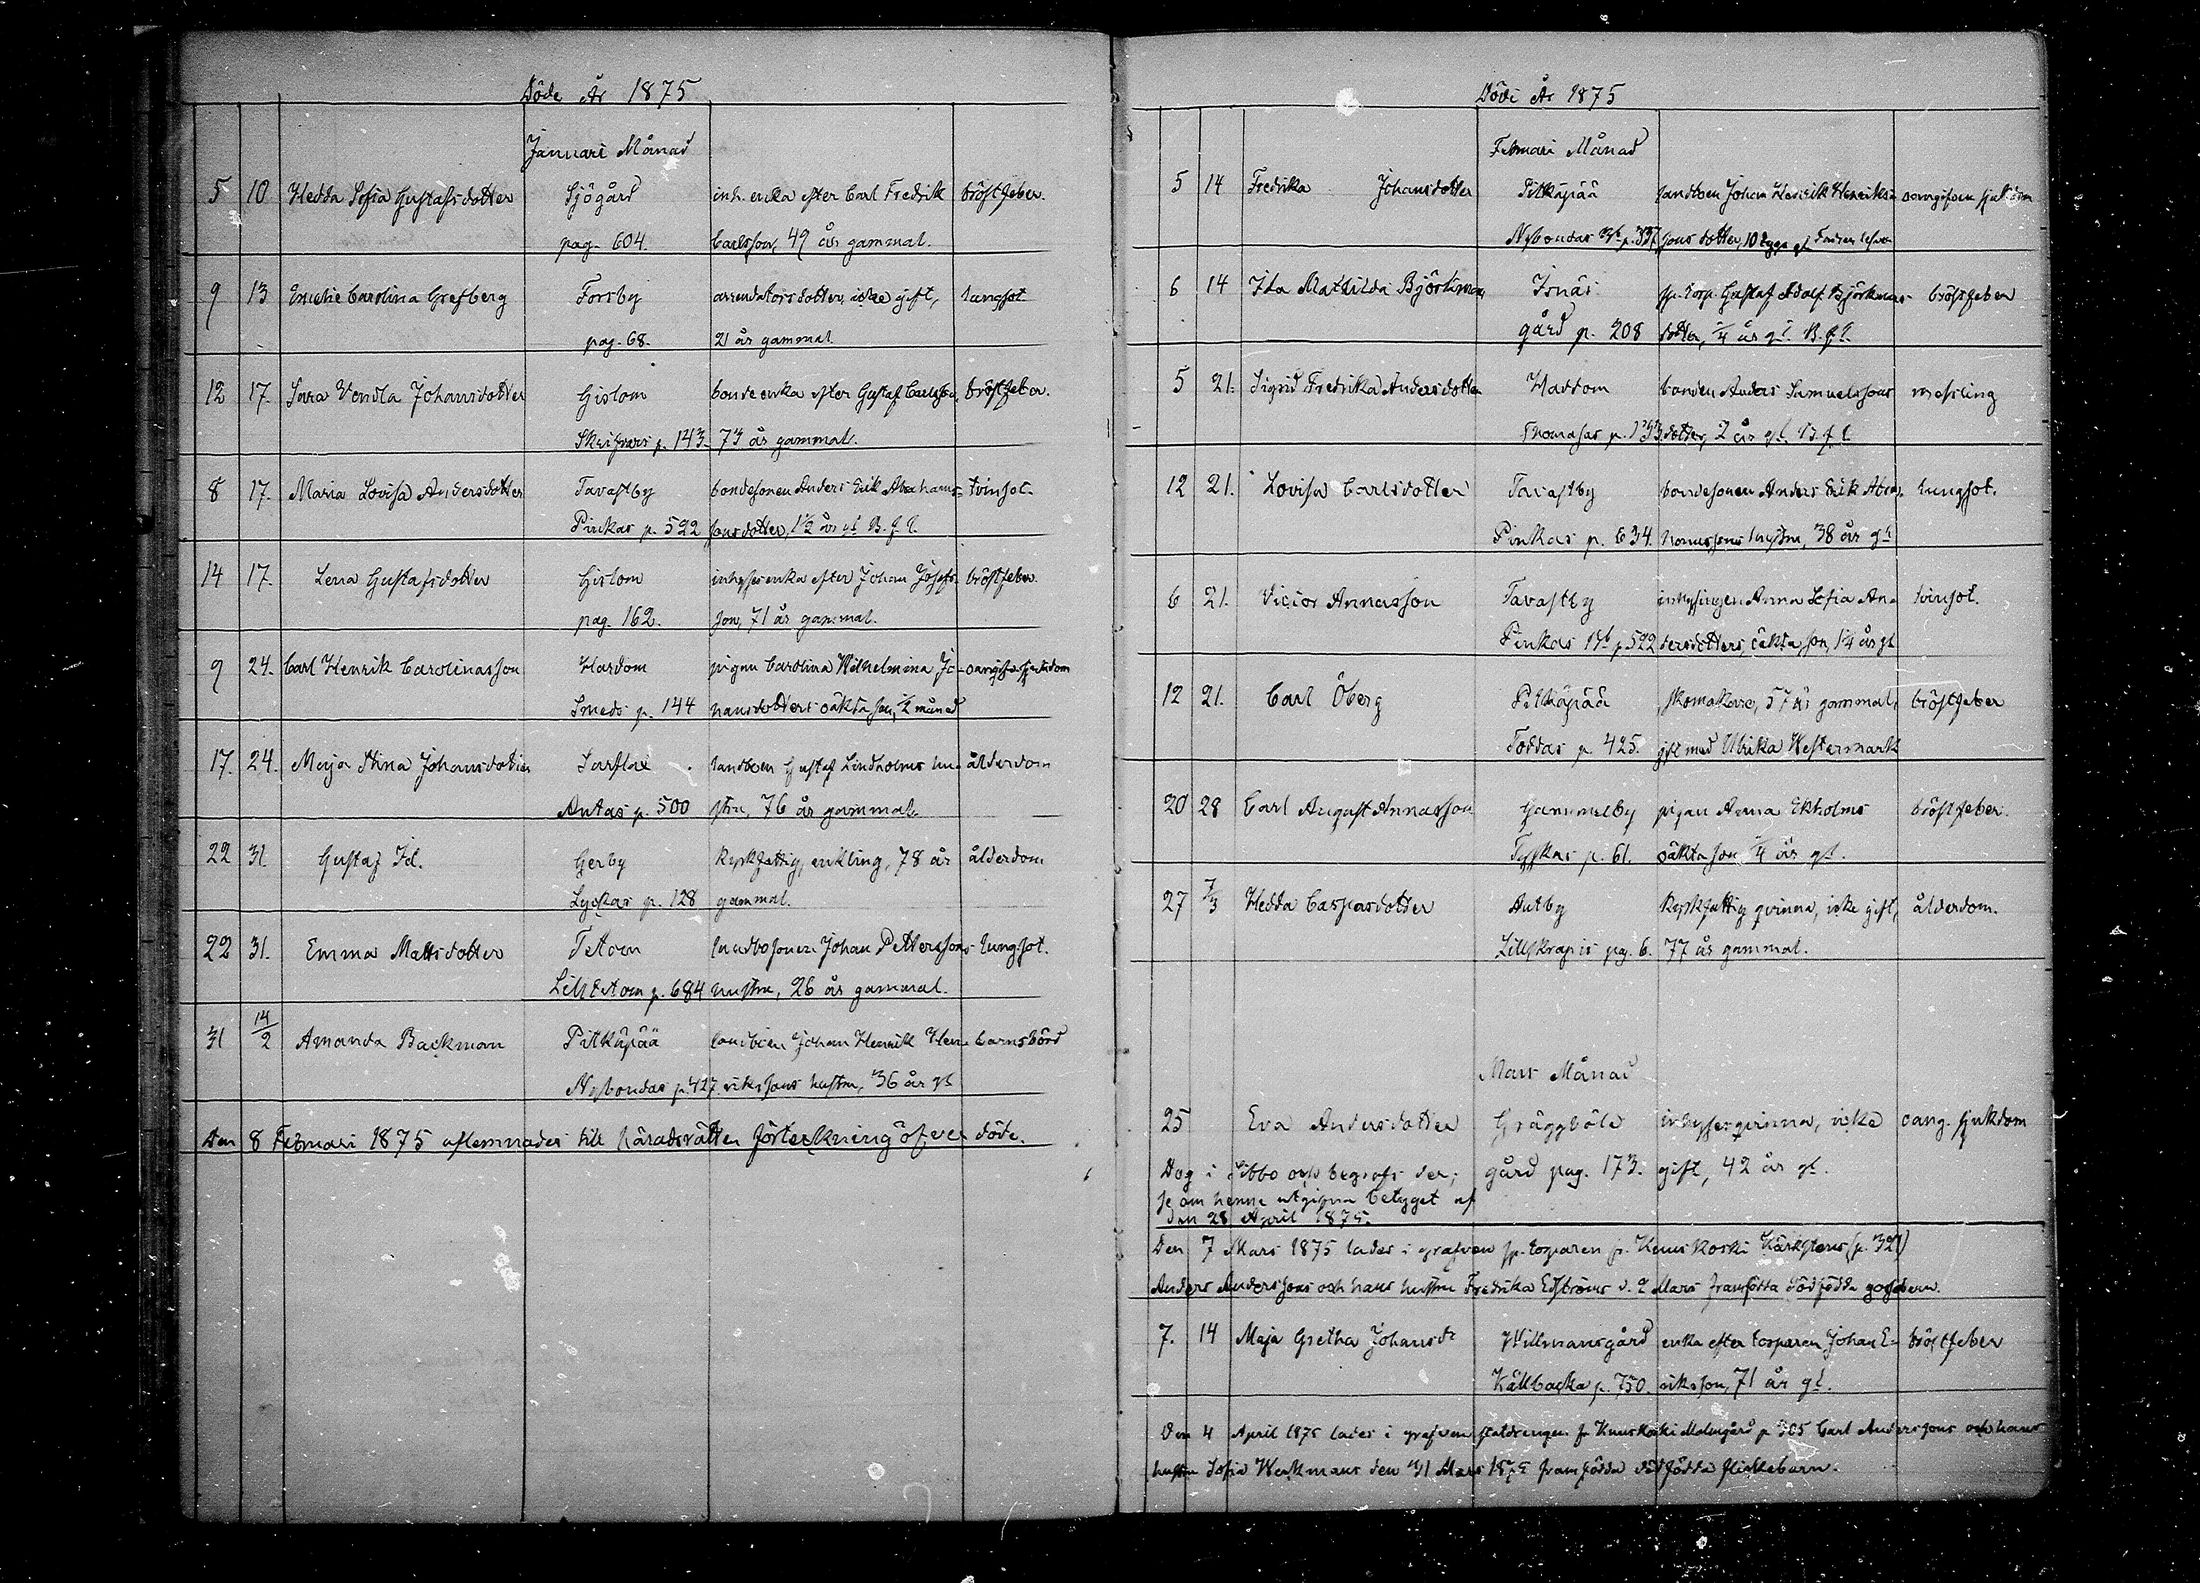 Döde År 1875
Januari Månad
5 10 Hedda Sofia Gustafsdotter Sjögård inh. enka efter Carl Fredrik bröstfeber.
pag. 604. Carlsson, 49 år gammal.
9 13 Emelie Carolina Grefberg Forsby arrendatorsdotter, icke gift, lungsot
pag. 68. 21 år gammal
12 17. Sara Vendla Johansdotter Gislom bonde enka efter Gustaf Carlsson, bröstfeber.
Skrifvars p. 143. 73 år gammal.
8 17. Maria Lovisa Andersdotter Tavastby bondesonen Anders Erik Abrahams- tvinsot.
Pinkas p. 522 sons dotter, 1½ år gl. B. f. l.
14 17. Lena Gustafsdotter Gislom inhyses enka efter Johan Josefs- bröstfeber.
pag. 162. son, 71 år gammal.
9 24. Carl Henrik Carolinasson Hardom pigan Carolina Wilhelmina Jo- oangifven sjukdom
Smeds p. 144 hansdotters oäkta son, ½ månad
17. 24. Maja Stina Johansdotter Sarflax landboen Gustaf Lindholms hu- ålderdom
Antas p. 500 stru, 76 år gammal.
22 31. Gustaf Id. Gerby kyrkfattig, enkling, 78 år ålderdom
Lyckas p. 128 gammal.
22 31. Emma Mattsdotter Tetom landbosonen Johan Petterssons lungsot.
Lilltetom p. 684 hustru, 26 år gammal.
31 14/2 Amanda Backman Pitkäpää landboen Johan Henrik Hen- barnsbörd
Nybondas p. 427. rikssons hustru, 36 år gl
Den 8 Februari 1875 aflemnades till häradsrätten förteckning öfver döde.
Döde År 1875
Februari Månad
5 14 Fredrika Johansdotter Pitkäpää landboen Johan Henrik Henriks- oangifven sjukdom
Nybondas p. 337 sons dotter, 10 dygn gl
6 14 Ida Mathilda Björkman Isnäs sp. torp. Gustaf Adolf Björkmans bröstfeber
gård p. 208 dotter, ¾ år gl. B. f. l.
5 21. Sigrid Fredrika Andersdotter Hardom bonden Anders Samuelssons messling
Thomasas p. 133. dotter, 2 år gl. B. f. l.
12 21. Lovisa Carlsdotter Tavastby bondesonen Anders Erik Abra- lungsot.
Pinkas p. 634. hamssons hustru, 38 år gl
6 21. Victor Annasson Tavastby inhysingen Anna Sofia An- tvinsot.
Pinkas p. 522 dersdotters oäkta son, 1¼ år gl
12 21. Carl Öberg Pitkäpää skomakare, 57 år gammal, bröstfeber
Toddas p. 425. gift med Ulrika Westermark
20 28 Carl August Annasson Gammelby pigan Anna Ekholms bröstfeber.
Tyskas p. 61. oäkta son ¼ år gl.
27 7/3 Hedda Caspersdotter Antby kyrkfattig qvinna, icke gift, ålderdom.
Lillskrapis pag. 6. 77 år gammal.
Mars Månad
25 Eva Andersdotter Gräggböle inhyses qvinna, icke oang. sjukdom
Dog i Sibbo och begrofs der; gård pag. 173. gift, 42 år gl.
se om henne utgifna betyget af
den 28 April 1875.
Den 7 Mars 1875 lades i grafven sp. torparen fr. Kuuskoski Kärkstens (p. 321)
Anders Anderssons och hans hustru Fredrika Edströms d. 2 Mars framfödda dödfödda gossebarn.
7. 14 Maja Gretha Johansdr Willmansgård enka efter torparen Johan E- bröstfeber
Källbacka p. 750. riksson, 71 år gl.
Den 4 April 1875 lades i grafven fr Kuuskoski Malmgård p 305 Carl Anderssons och hans
hustru Sofia Werkmans den 31 Mars 1875 framfödda dödfödda flickebarn.